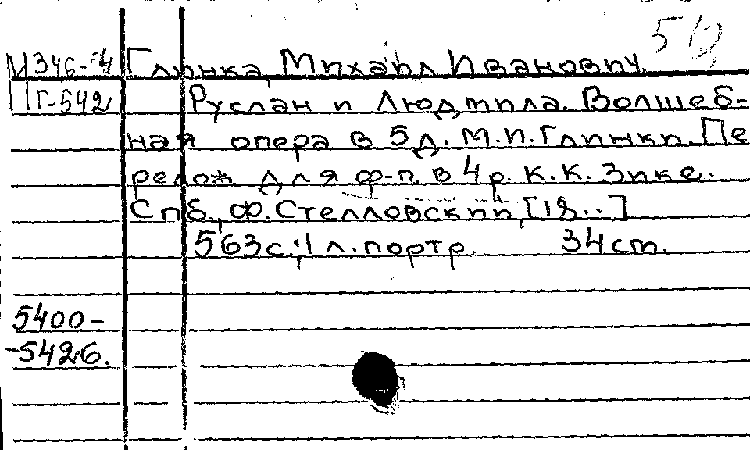 50
М 346-4 Глинка, Михаил Иванович.
Пг-542 Руслан и Людмила. Волшеб-
ная опера в 5 д. М.И. Глинки. Пе
релож. для ф-п. в 4 р. К.К. Зике.
Спб., Ф. Стелловский, [18..]
563 с.; 1 л. портр. 34 cm.
5400-
-5426.